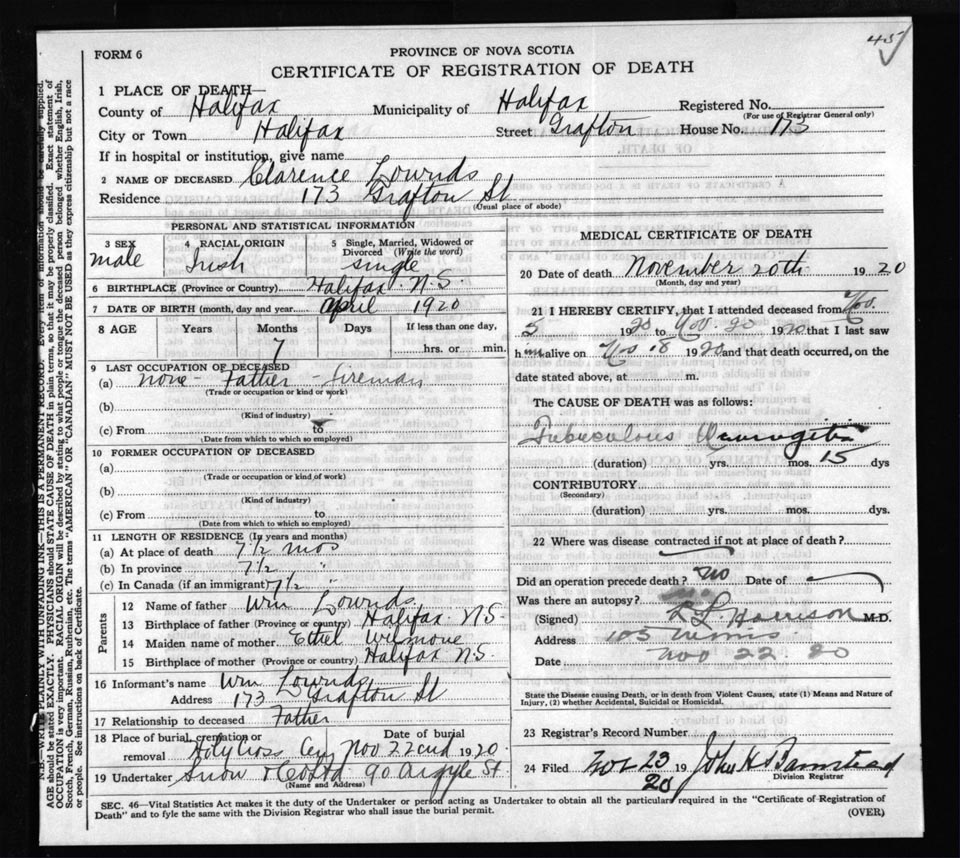 45
FORM 6
PROVINCE OF NOVA SCOTIA
CERTIFICATE OF REGISTRATION OF DEATH
1 PLACE OF DEATH—
County of Halifax Municipality of Halifax Registered No.
(For use of Registrar General only)
City or Town Halifax Street Grafton House No. 173
If in hospital or institution, give name
2 NAME OF DECEASED Clarence Lownds
Residence 173 Grafton St
(Usual place of abode)
PERSONAL AND STATISTICAL INFORMATION
3 SEX 4 RACIAL ORIGIN 5 Single, Married, Widowed or Divorced (Write the word)
male Irish single
6 BIRTHPLACE (Province or Country) Halifax N.S.
7 DATE OF BIRTH (month, day and year) april 1920
8 AGE Years Months Days If less than one day,
7 hrs. or min.
9 LAST OCCUPATION OF DECEASED
(a) none - Father - Fireman
(Trade or occupation or kind of work)
(b)
(Kind of industry)
(c) From to
(Date from which to which so employed)
10 FORMER OCCUPATION OF DECEASED
(a)
(Trade or occupation or kind of work)
(b)
(Kind of industry)
(c) From to
(Date from which to which so employed)
11 LENGTH OF RESIDENCE (In years and months)
(a) At place of death 7½ mos
(b) In province 7½ "
(c) In Canada (if an immigrant) 7½ "
Parents
12 Name of father Wm Lownds
13 Birthplace of father (Province or country) Halifax N.S.
14 Maiden name of mother Ethel
15 Birthplace of mother (Province or country) Halifax N.S.
16 Informant's name Wm Lownds
Address 173 Grafton St
17 Relationship to deceased Father
18 Place of burial, cremation or removal Date of burial
Holy Cross Cem Nov 22nd 1920
19 Undertaker Snow & Co Ltd 90 Argyle St
(Name and Address)
MEDICAL CERTIFICATE OF DEATH
20 Date of death November 20th 1920
(Month, day and year)
21 I HEREBY CERTIFY, that I attended deceased from Nov.
5 1920 to Nov. 20 1920 that I last saw
him alive on Nov 18 1920 and that death occurred, on the
date stated above, at m.
The CAUSE OF DEATH was as follows:
Tubuculous Meningitis
(duration) yrs. mos. 15 dys
CONTRIBUTORY
(Secondary)
(duration) yrs. mos. dys.
22 Where was disease contracted if not at place of death?
Did an operation precede death? no Date of
Was there an autopsy?
(Signed) Harrison M.D.
Address 105
Date Nov 22 20
State the Disease causing Death, or in death from Violent Causes, state (1) Means and Nature of
Injury, (2) whether Accidental, Suicidal or Homicidal.
23 Registrar's Record Number
24 Filed Nov 23 19 20 John H Barnstead
Division Registrar
SEC. 46—Vital Statistics Act makes it the duty of the Undertaker or person acting as Undertaker to obtain all the particulars required in the "Certificate of Registration of
Death" and to fyle the same with the Division Registrar who shall issue the burial permit.
(OVER)
N.B.—WRITE PLAINLY WITH UNFADING INK—THIS IS A PERMANENT RECORD. Every item of information should be carefully supplied.
AGE should be stated EXACTLY. PHYSICIANS should STATE CAUSE OF DEATH in plain terms, so that it may be properly classified. Exact statement of
OCCUPATION is very important. RACIAL ORIGIN will be described by stating to what people or tongue the deceased person belonged whether English, Irish,
Scotch, French, German, Russian, Ruthenian, etc. The terms "AMERICAN" or "CANADIAN" MUST NOT BE USED as they express citizenship but not a race
or people. See instructions on back of Certificate.